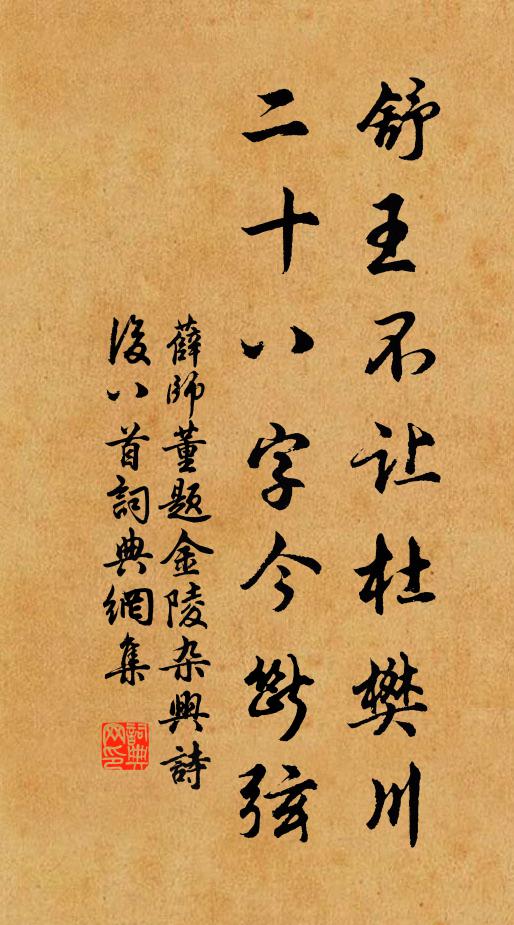 舒王不让杜樊川
二十八字今断弦
薛师董题金陵杂兴诗
後八首詞典網集
詞典网印